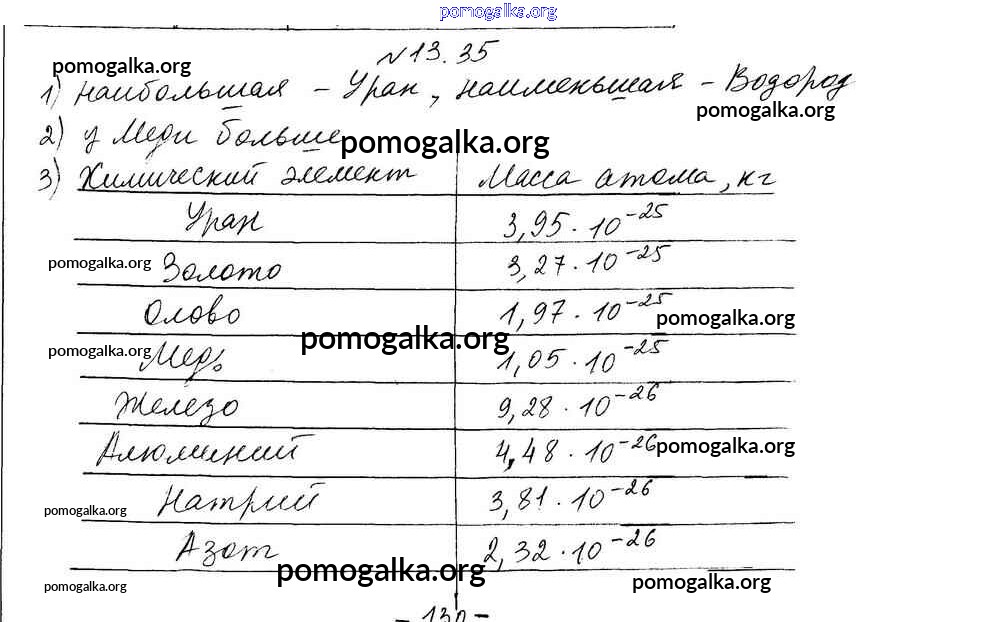 pomogalka.org
№13.35
pomogalka.org
1) наибольшая – Уран, наименьшая – Водород
pomogalka.org
2) у Меди больше
pomogalka.org
3) Химический элемент Масса атома, кг
Уран 3,95 · 10⁻²⁵
pomogalka.org
Золото 3,27 · 10⁻²⁵
Олово 1,97 · 10⁻²⁵
pomogalka.org
pomogalka.org
pomogalka.org
Медь 1,05 · 10⁻²⁵
Железо 9,28 · 10⁻²⁶
Алюминий 4,48 · 10⁻²⁶
pomogalka.org
Натрий 3,81 · 10⁻²⁶
pomogalka.org
Азот 2,32 · 10⁻²⁶
pomogalka.org
pomogalka.org
pomogalka.org
– 130 –